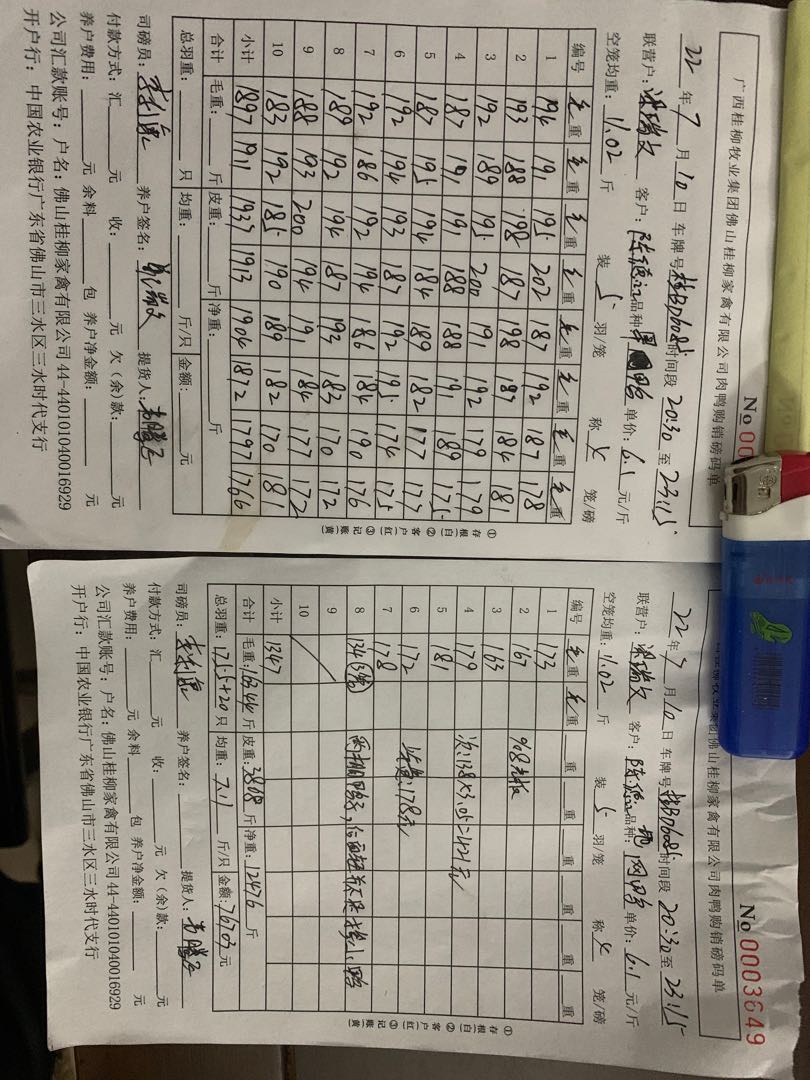 广西桂柳牧业集团佛山桂柳家禽有限公司肉鸭购销磅码单
No 00
22 年 7 月 10 日 车牌号 时间段 20:30 至 23:15
联营户: 梁瑞文 客户: 陈德江 品种 单价: 6.1 元/斤
空笼均重: 11.02 斤 装 5 羽/笼 称 父 笼/磅
编号 毛重 毛重 毛重 毛重 毛重 毛重 毛重 毛重
1 194 191 195 202 187 192 187 178
2 193 188 198 187 198 187 184 181
3 192 189 195 200 191 192 179 179
4 187 191 191 188 188 191 189 175
5 187 195 194 184 189 182 177 177
6 192 194 193 187 192 195 174 175
7 192 186 192 194 186 184 190 176
8 189 192 194 187 193 183 170 172
9 188 193 200 194 191 184 177 172
10 183 192 185 190 189 182 170 181
小计 1897 1911 1937 1913 1904 1872 1797 1766
合计 毛重: 斤 皮重: 斤 净重: 斤
总羽重: 只 均重: 斤/只 金额: 元
司磅员: 养户签名: 提货人:
付款方式: 汇 元 收: 元 欠(余)款: 元
养户费用: 元 余料 包 养户净金额: 元
公司汇款账号: 户名: 佛山桂柳家禽有限公司 44-440101040016929
开户行: 中国农业银行广东省佛山市三水区三水时代支行
①存根(白) ②客户(红) ③记账(黄)
佛山桂柳家禽有限公司肉鸭购销磅码单
No 0003649
22 年 7 月 10 日 车牌号 时间段 20:30 至 23:15
联营户: 梁瑞文 客户: 陈德江 品种: 单价: 6.1 元/斤
空笼均重: 11.02 斤 装 5 羽/笼 称 父 笼/磅
编号 毛重 毛重 重 重 重 重 重 重
1 173
2 167
3 163
4 179
5 181
6 172
7 178
8 134 3笼
9
10
小计 1347
合计 毛重: 16344 斤 皮重: 3808 斤 净重: 12476 斤
总羽重: 1715+20 只 均重: 7.11 斤/只 金额: 76703 元
司磅员: 养户签名: 提货人:
付款方式: 汇 元 收: 元 欠(余)款: 元
养户费用: 元 余料 包 养户净金额: 元
公司汇款账号: 户名: 佛山桂柳家禽有限公司 44-440101040016929
开户行: 中国农业银行广东省佛山市三水区三水时代支行
①存根(白) ②客户(红) ③记账(黄)